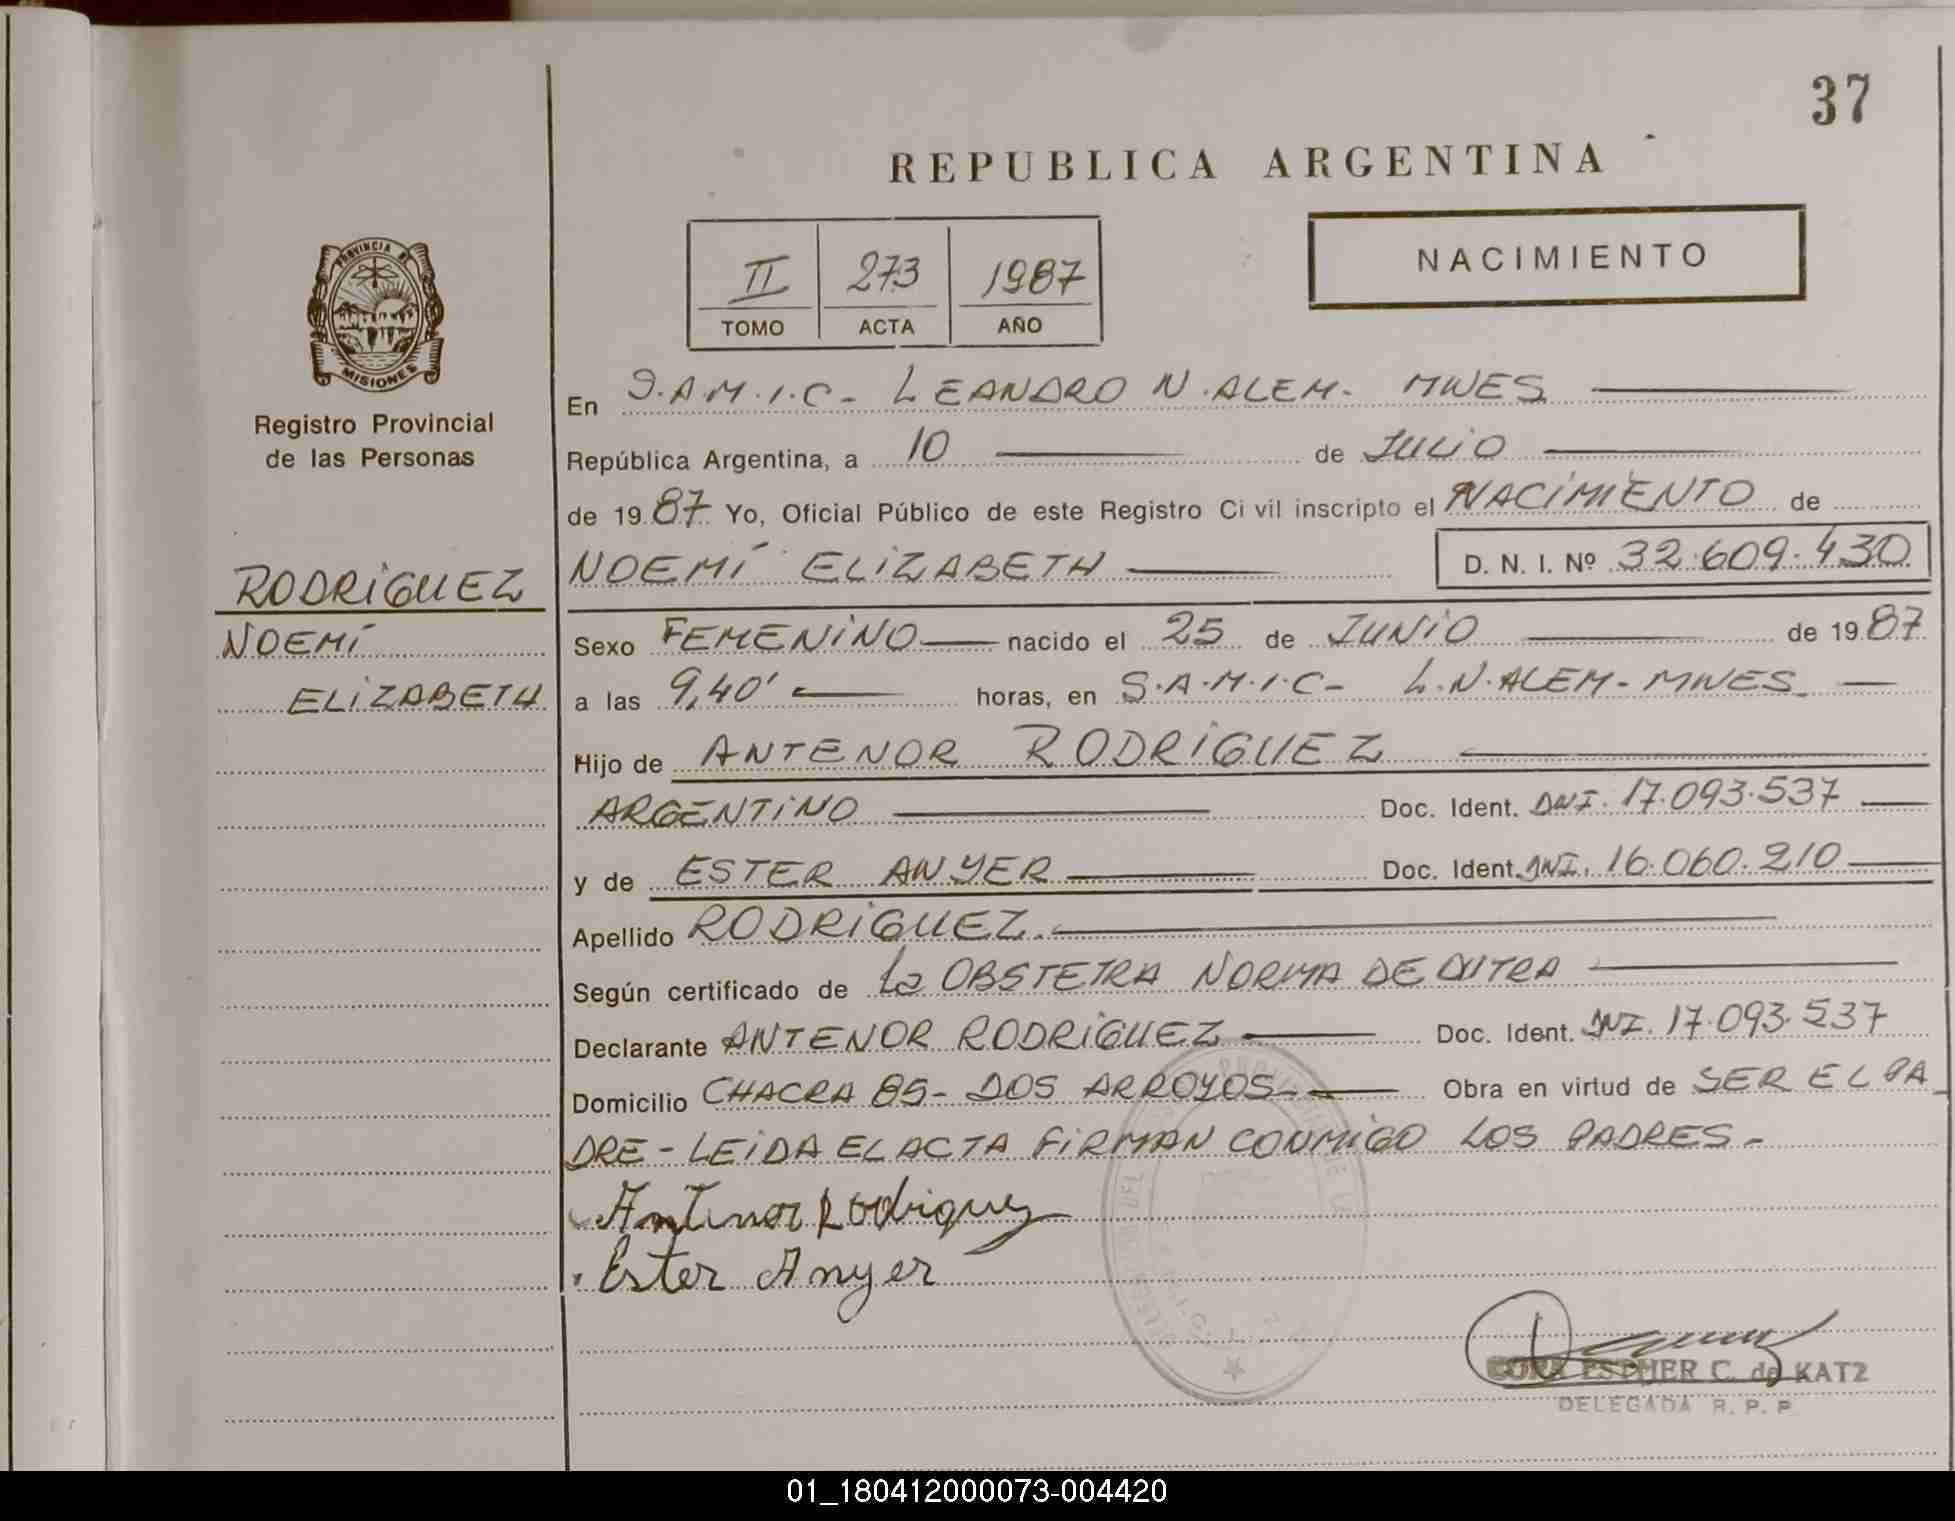 37
REPUBLICA ARGENTINA
II 273 1987
TOMO ACTA AÑO
NACIMIENTO
PROVINCIA DE
MISIONES
Registro Provincial
de las Personas
RODRIGUEZ
NOEMÍ
ELIZABETH
En S.A.M.I.C- LEANDRO N.ALEM- MNES
República Argentina, a 10 de JULIO
de 1987 Yo, Oficial Público de este Registro Ci vil inscripto el NACIMIENTO de
NOEMÍ ELIZABETH D. N. I. Nº 32.609.430
Sexo FEMENINO nacido el 25 de JUNIO de 1987
a las 9,40' horas, en S.A.M.I.C- L.N.ALEM-MNES
Hijo de ANTENOR RODRIGUEZ
ARGENTINO Doc. Ident. DNI. 17.093.537
y de ESTER ANYER Doc. Ident. DNI. 16.060.210
Apellido RODRIGUEZ.
Según certificado de La OBSTETRA NORMA DE
Declarante ANTENOR RODRIGUEZ Doc. Ident. DNI. 17.093.537
Domicilio CHACRA 85- DOS ARROYOS- Obra en virtud de SER EL PA
DRE-LEIDA EL ACTA FIRMAN CONMIGO LOS PADRES-
Antenor Rodriguez
Ester Anyer
CORA ESTHER C. de KATZ
DELEGADA R. P. P.
01_180412000073-004420